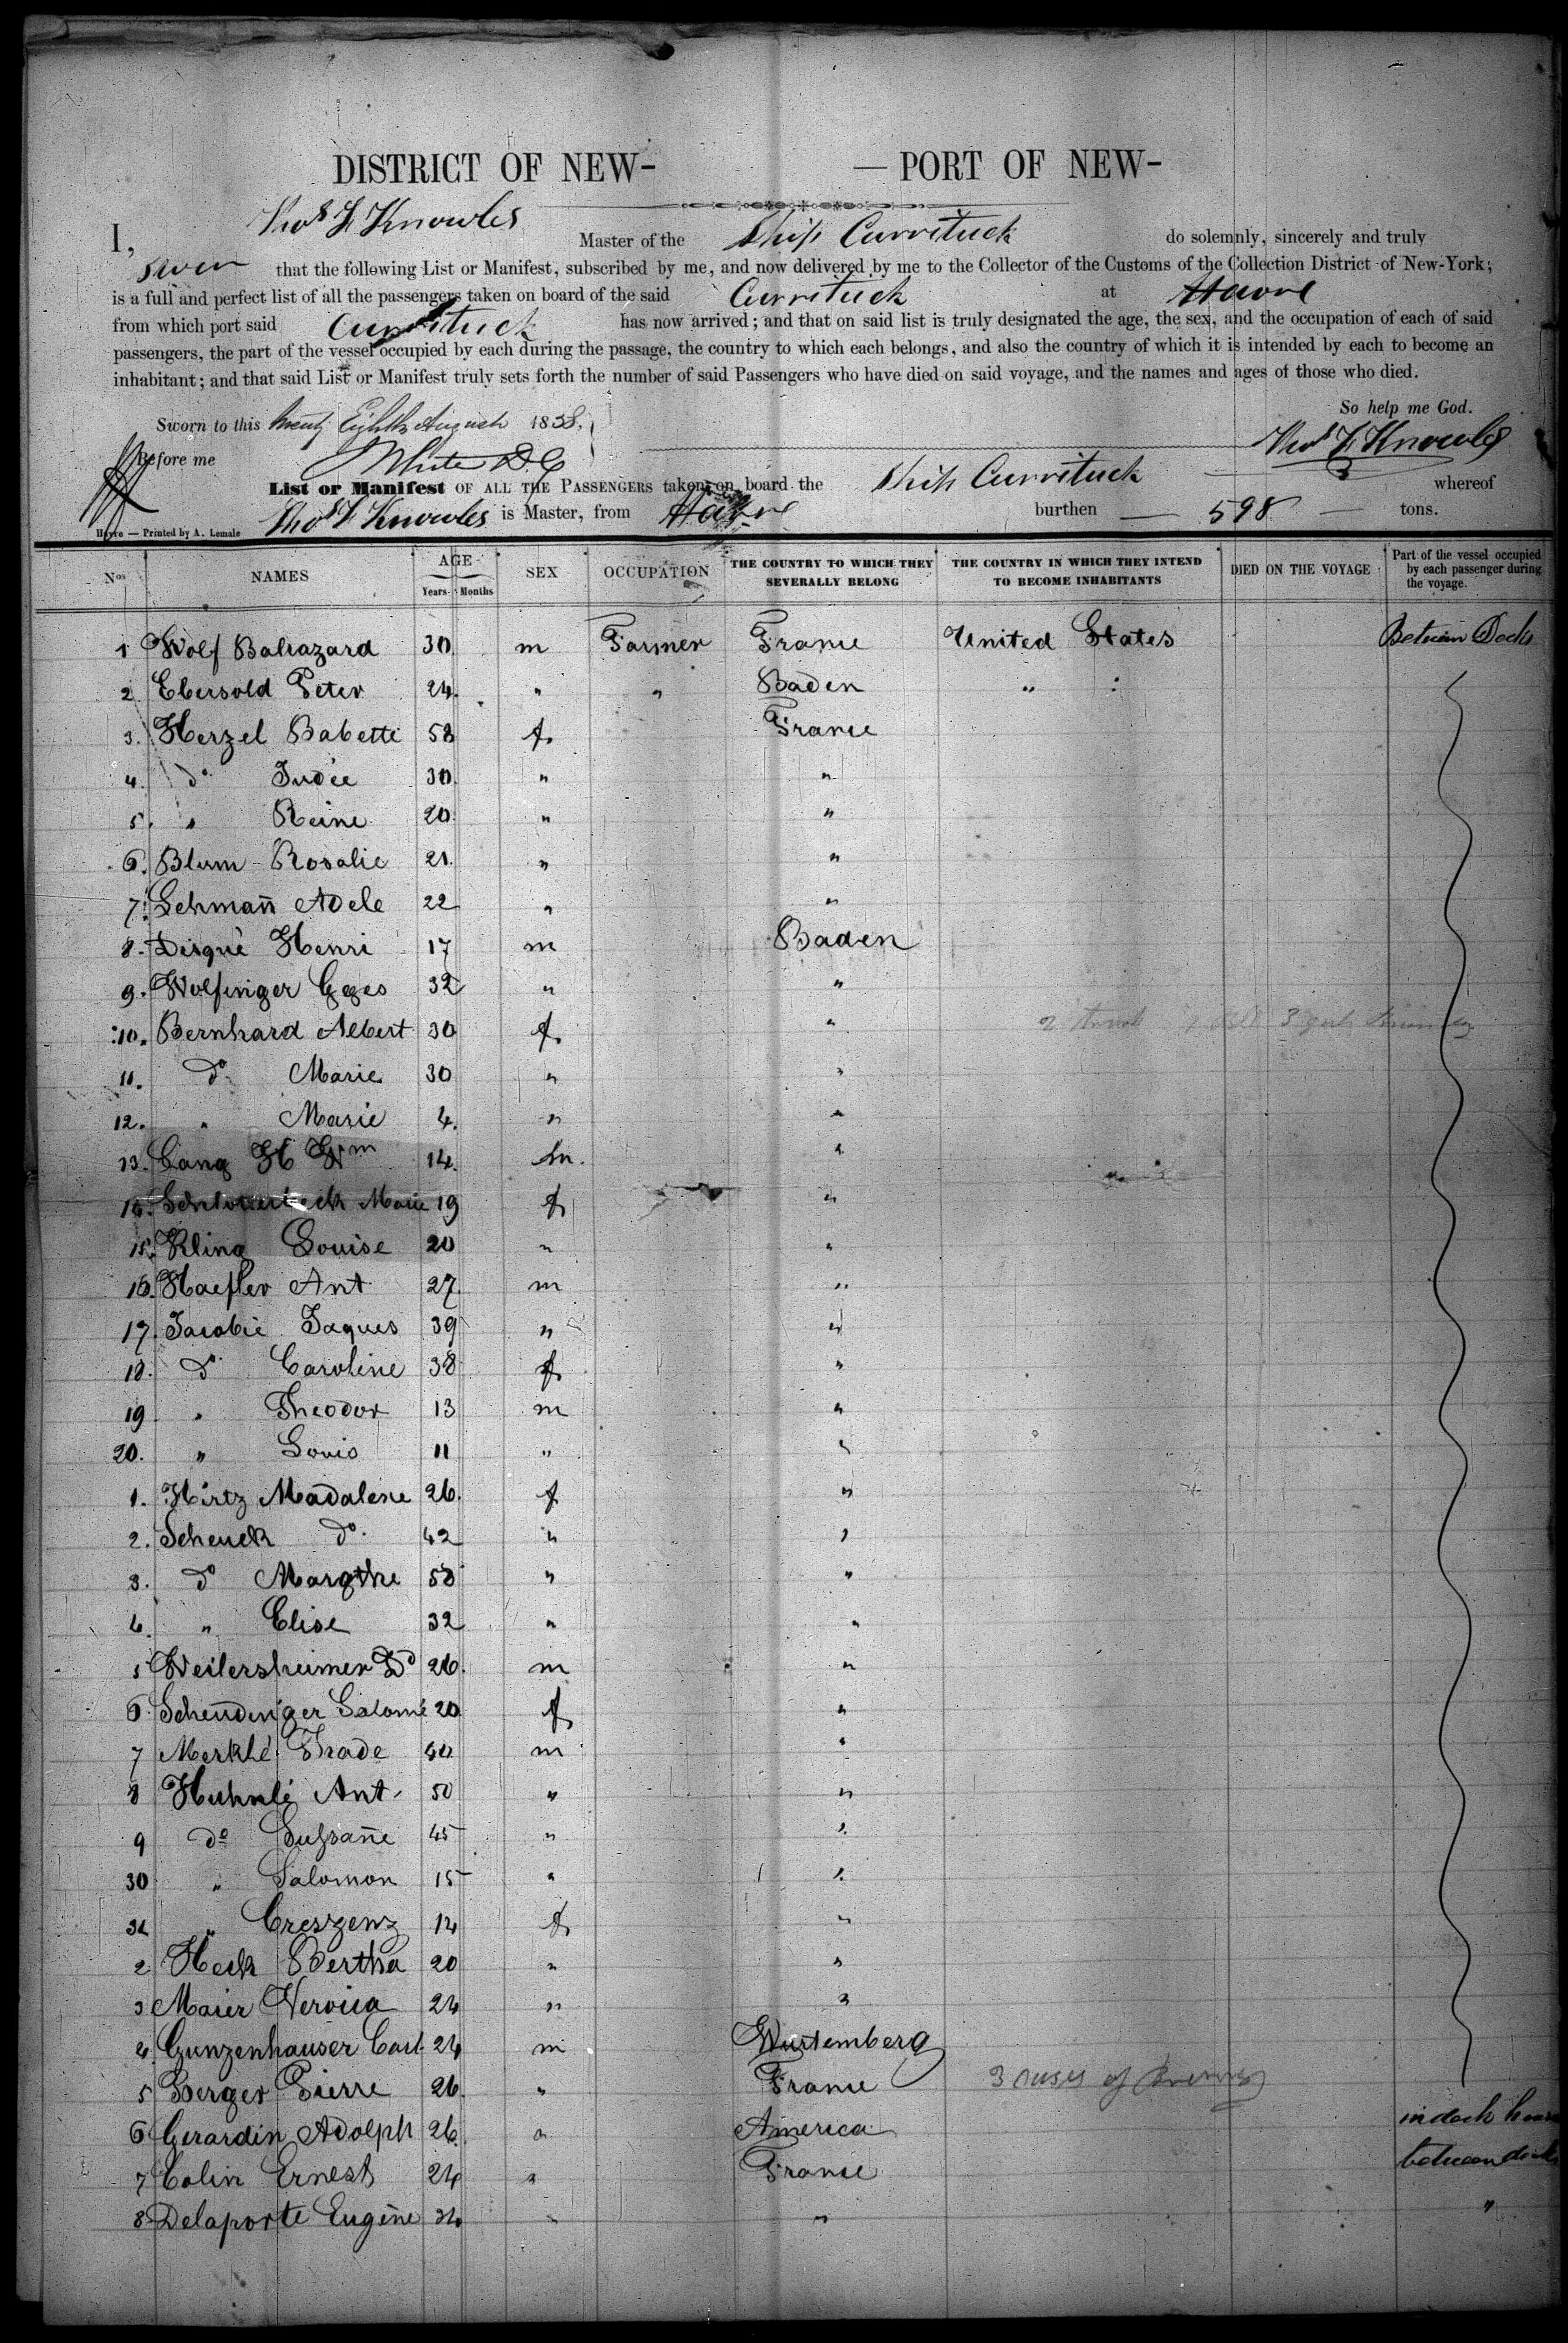 DISTRICT OF NEW- — PORT OF NEW-
I, Thos L Knowles Master of the Ship Currituck do solemnly, sincerely and truly
swear that the following List or Manifest, subscribed by me, and now delivered by me to the Collector of the Customs of the Collection District of New-York;
is a full and perfect list of all the passengers taken on board of the said Currituck at Havre
from which port said Currituck has now arrived; and that on said list is truly designated the age, the sex, and the occupation of each of said
passengers, the part of the vessel occupied by each during the passage, the country to which each belongs, and also the country of which it is intended by each to become an
inhabitant; and that said List or Manifest truly sets forth the number of said Passengers who have died on said voyage, and the names and ages of those who died.
So help me God.
Sworn to this twenty Eighth August 1858.
Thos L Knowles
Before me White D.C
List or Manifest OF ALL THE PASSENGERS taken on board the Ship Currituck whereof
Thos L Knowles is Master, from Havre burthen — 598 — tons.
Havre — Printed by A. Lemale
Nos NAMES AGE Years Months SEX OCCUPATION THE COUNTRY TO WHICH THEY SEVERALLY BELONG THE COUNTRY IN WHICH THEY INTEND TO BECOME INHABITANTS DIED ON THE VOYAGE Part of the vessel occupied by each passenger during the voyage.
1 Wolf Balrazard 30 m Farmer France United States Between Decks
2 Ebersold Peter 24 " " Baden " "
3. Herzel Babette 58 f. France
4. do Judée 30. " "
5. " Reine 20. " "
6. Blum Rosalie 21. " "
7. Lehmañ Adele 22 " "
8. Disqué Henri 17 m Baden
9. Wolfinger Gges 32 " "
10. Bernhard Albert 30 f. "
11. do Marie 30 " "
12. " Marie 4. " "
13. Lang H Wm 14. m. "
14. Marie 19 f "
15. Kling Louise 20 " "
16. Haefler Ant 27. m "
17. Jacobie Jaques 39 " "
18. do Caroline 38 f. "
19 " Theodor 13 m "
20. " Louis 11 " "
1. Hirtz Madalene 26. f "
2. Scheuck do 42 " "
3. do Margthe 58 " "
4. " Elise 32 " "
5 Weilersheimer Do 26. m "
6 Scheudinger Salomé 20 f "
7 Merklé 40 m "
8 Huhnlé Ant. 50 " "
9 do Sussañe 45 " "
30 " Salomon 15 " "
31 " Creszenz 14 f "
2 Heck Bertha 20 " "
3 Maier Veroica 24 " "
4. Gunzenhauser Carl 24 m Wurtemberg
5 Berger Pierre 26. " France 3 cases of
6 Gerardin Adolph 26. " America in deck house
7 Colin Ernest 24 " France between decks
8 Delaporte Eugène 34. " " "